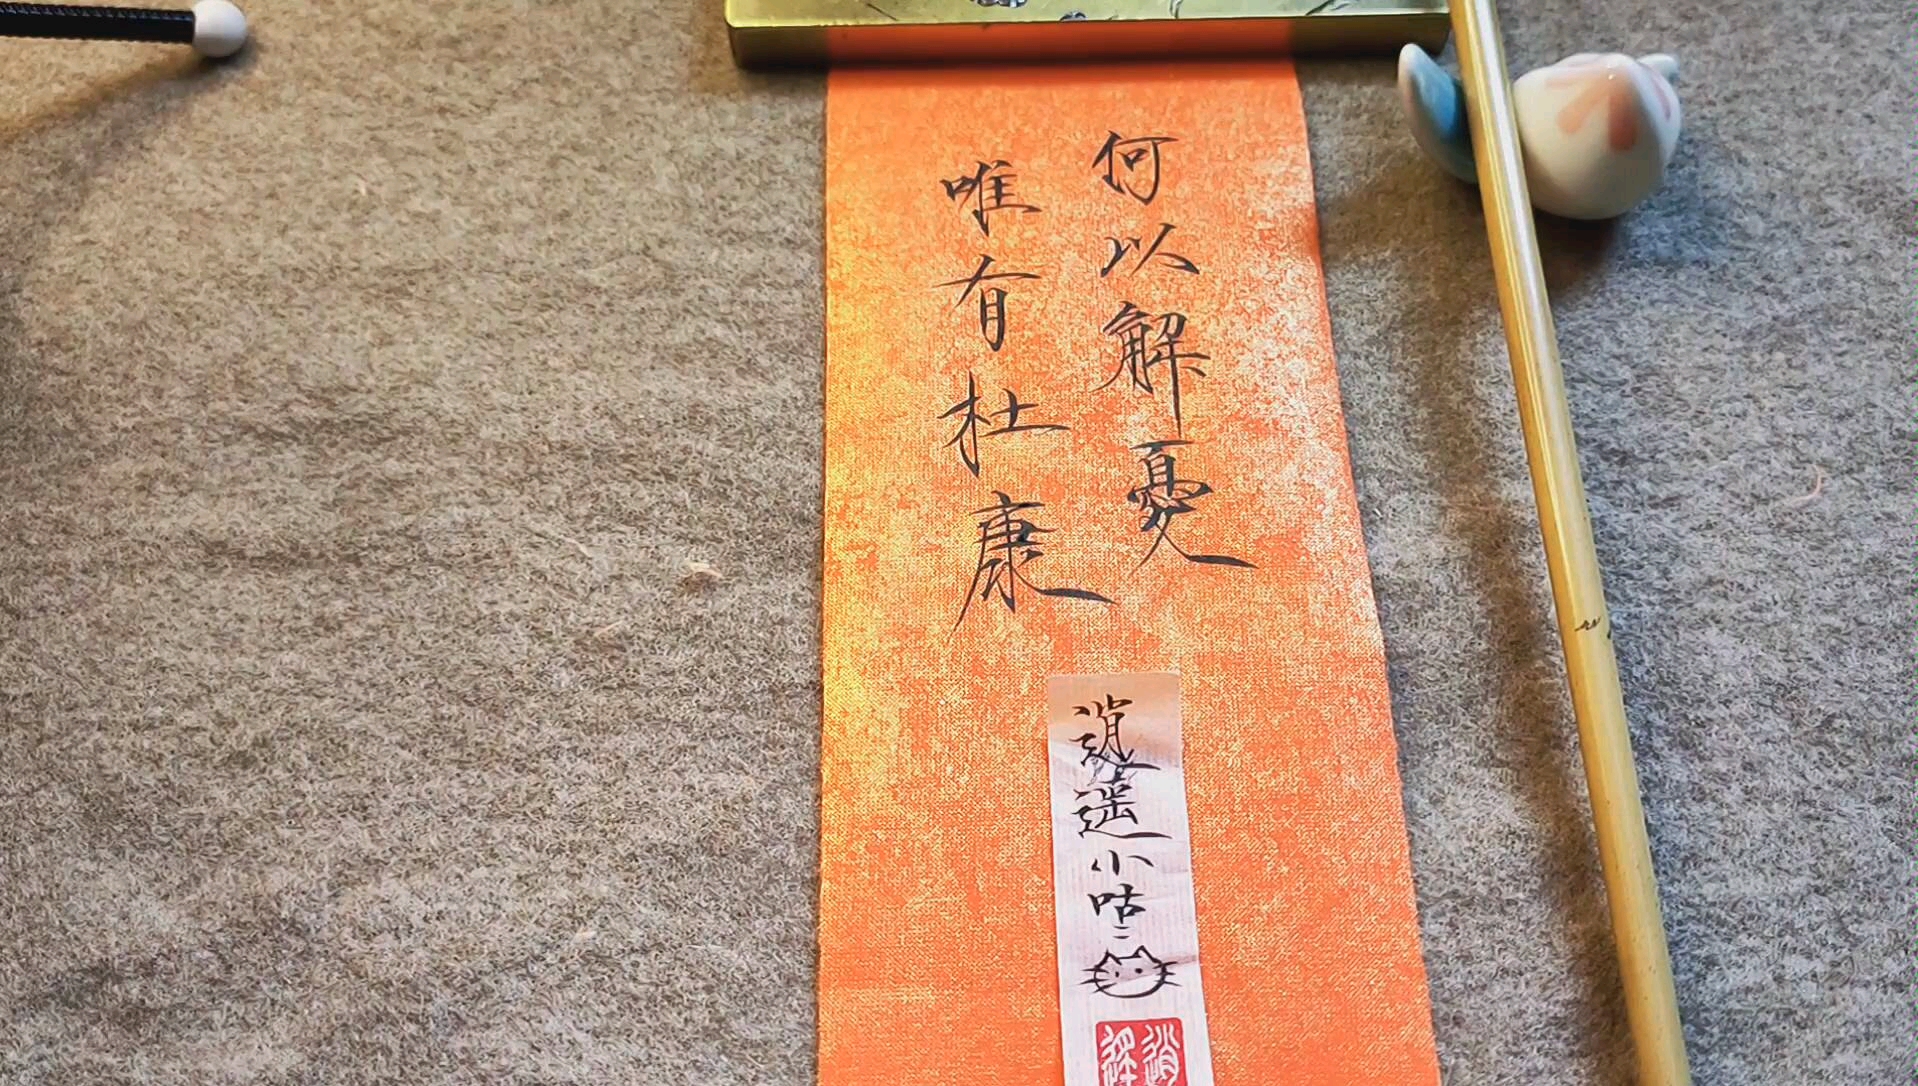 何以解憂
唯有杜康
逍遥小咕〻
逍遥